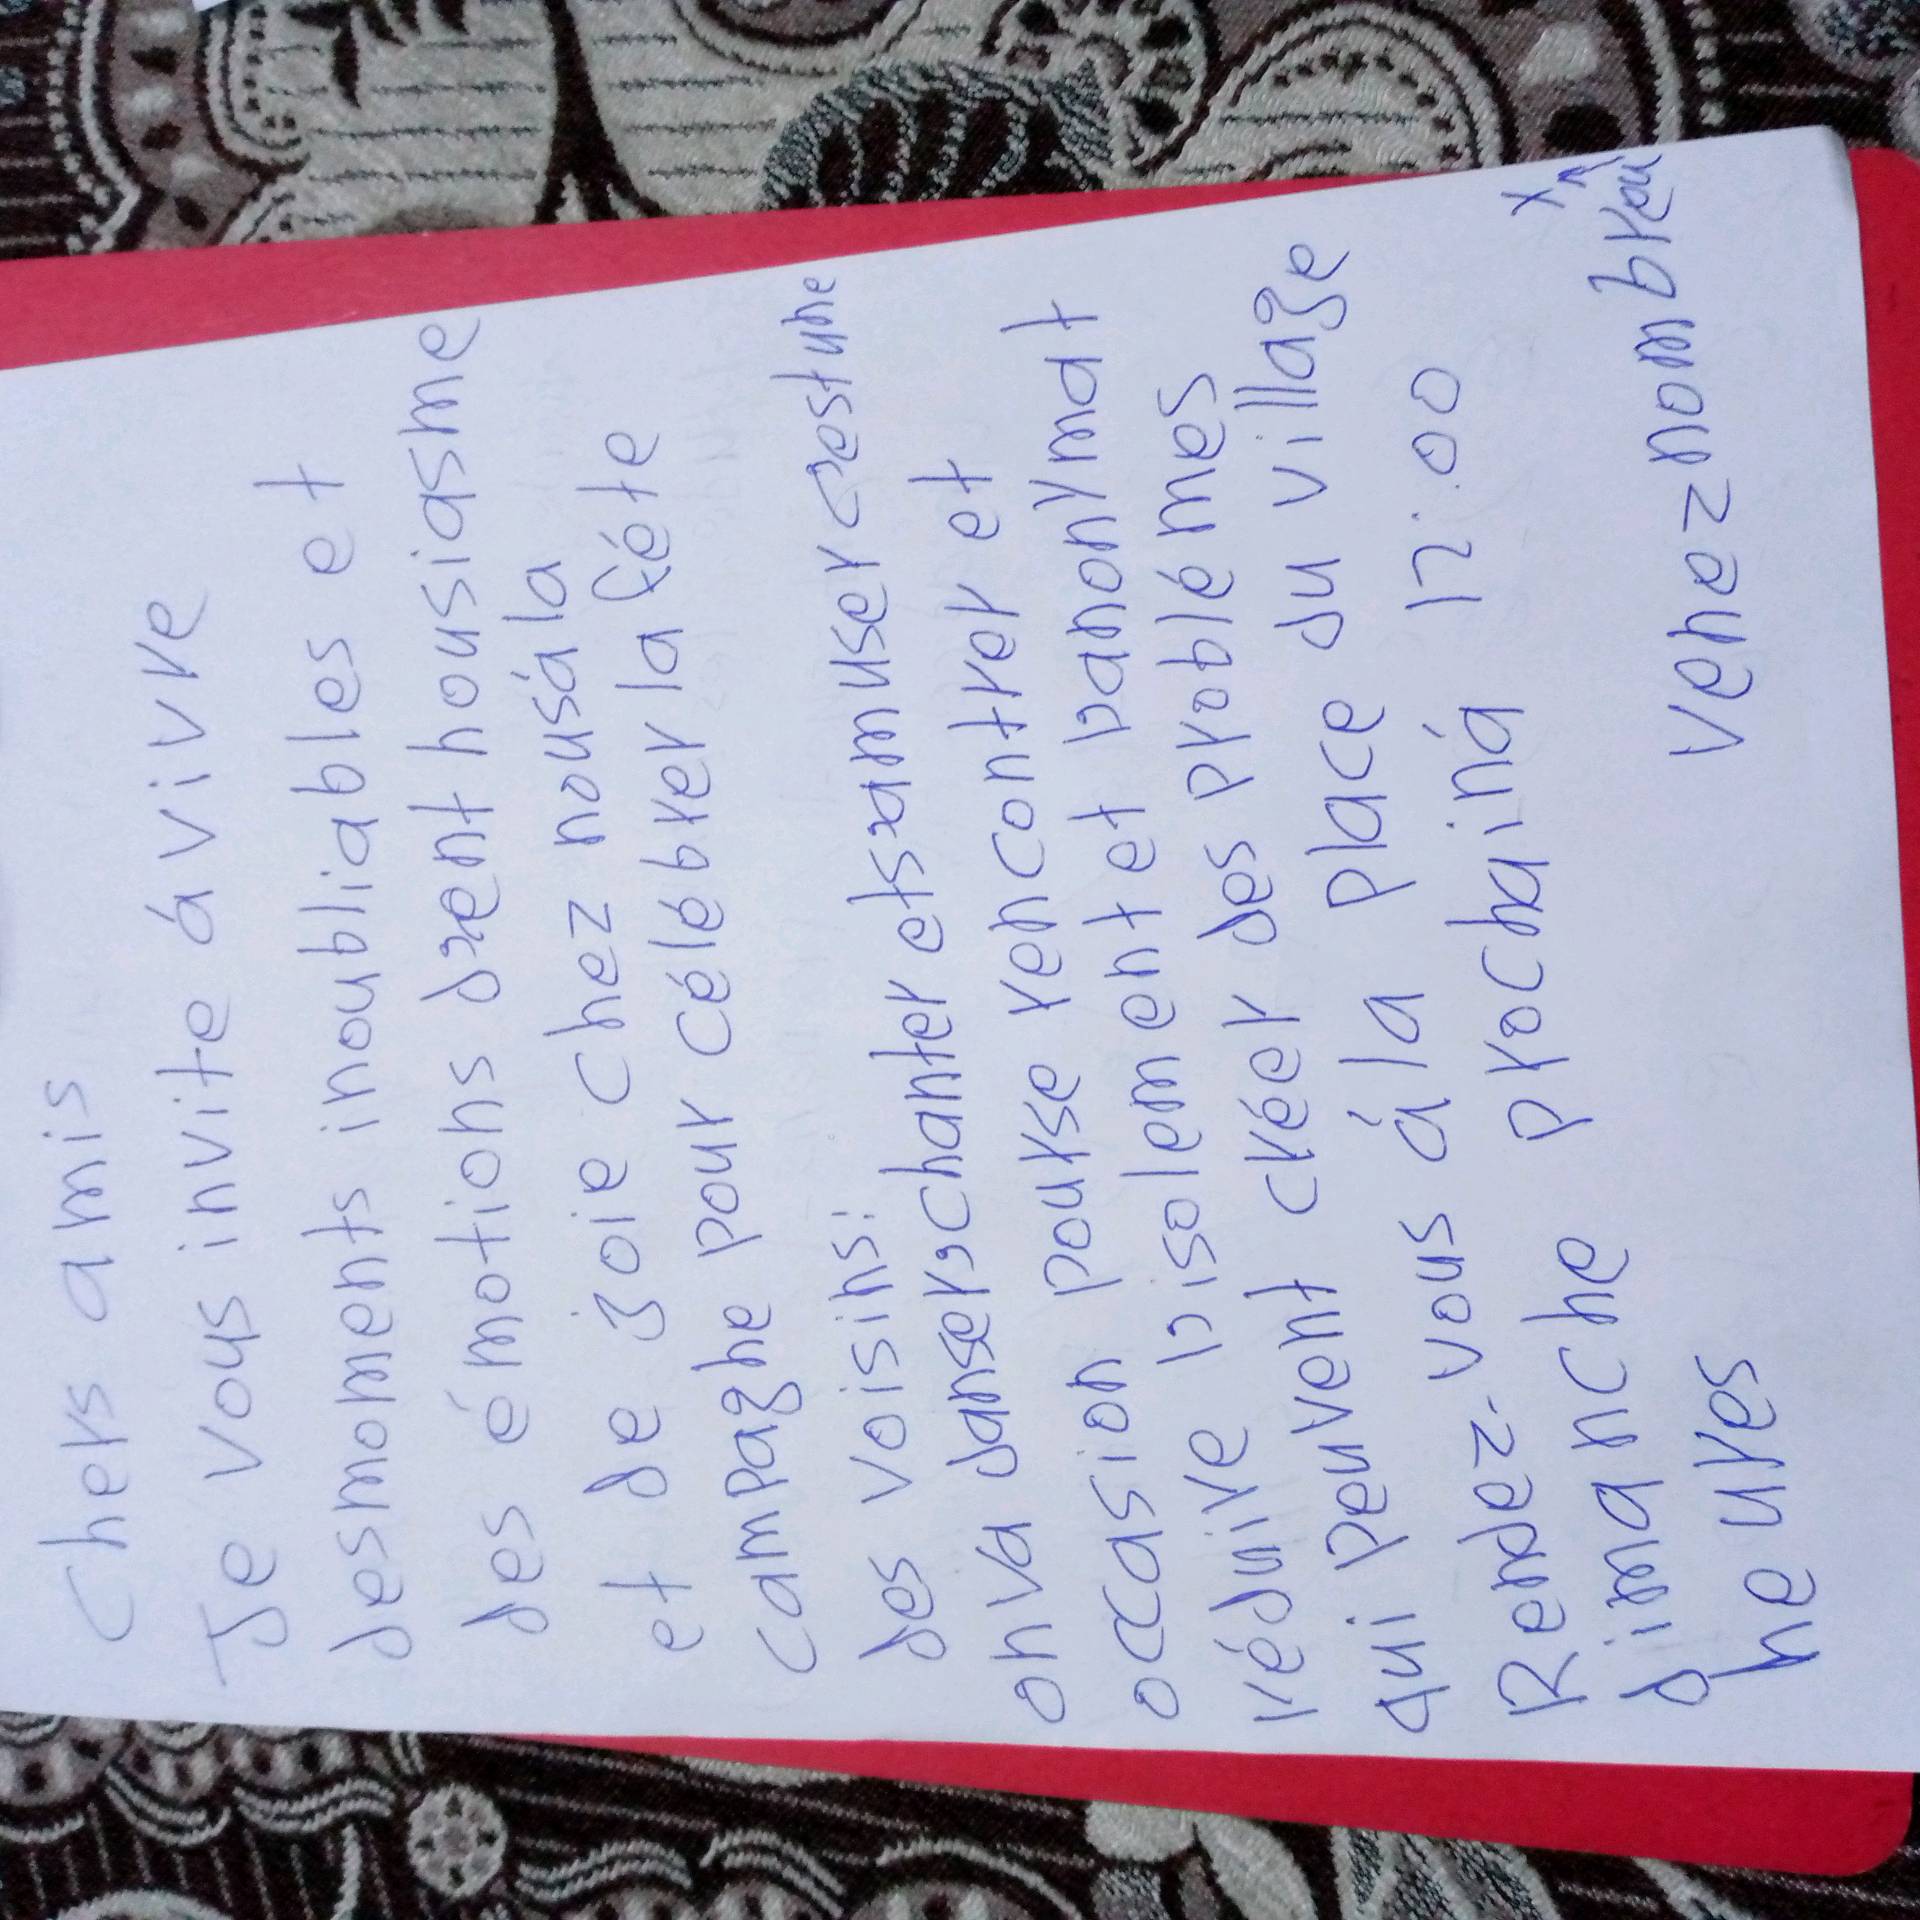 Chers amis
Je vous invite á vivre
desmoments inoubliables et
des émotions d'enthousiasme
et de joie chez nousá la
campagne pour célébrer la féte
des voisins:
onva danser,chanter ets'amuser c'estune
occasion pourse rencontrer et
réduire l'isolement et l'anonymat
qui peuvent créer des problémes
Rendez-vous á la place du village
dimanche prochain á 12:00
heures
Veneznombreux